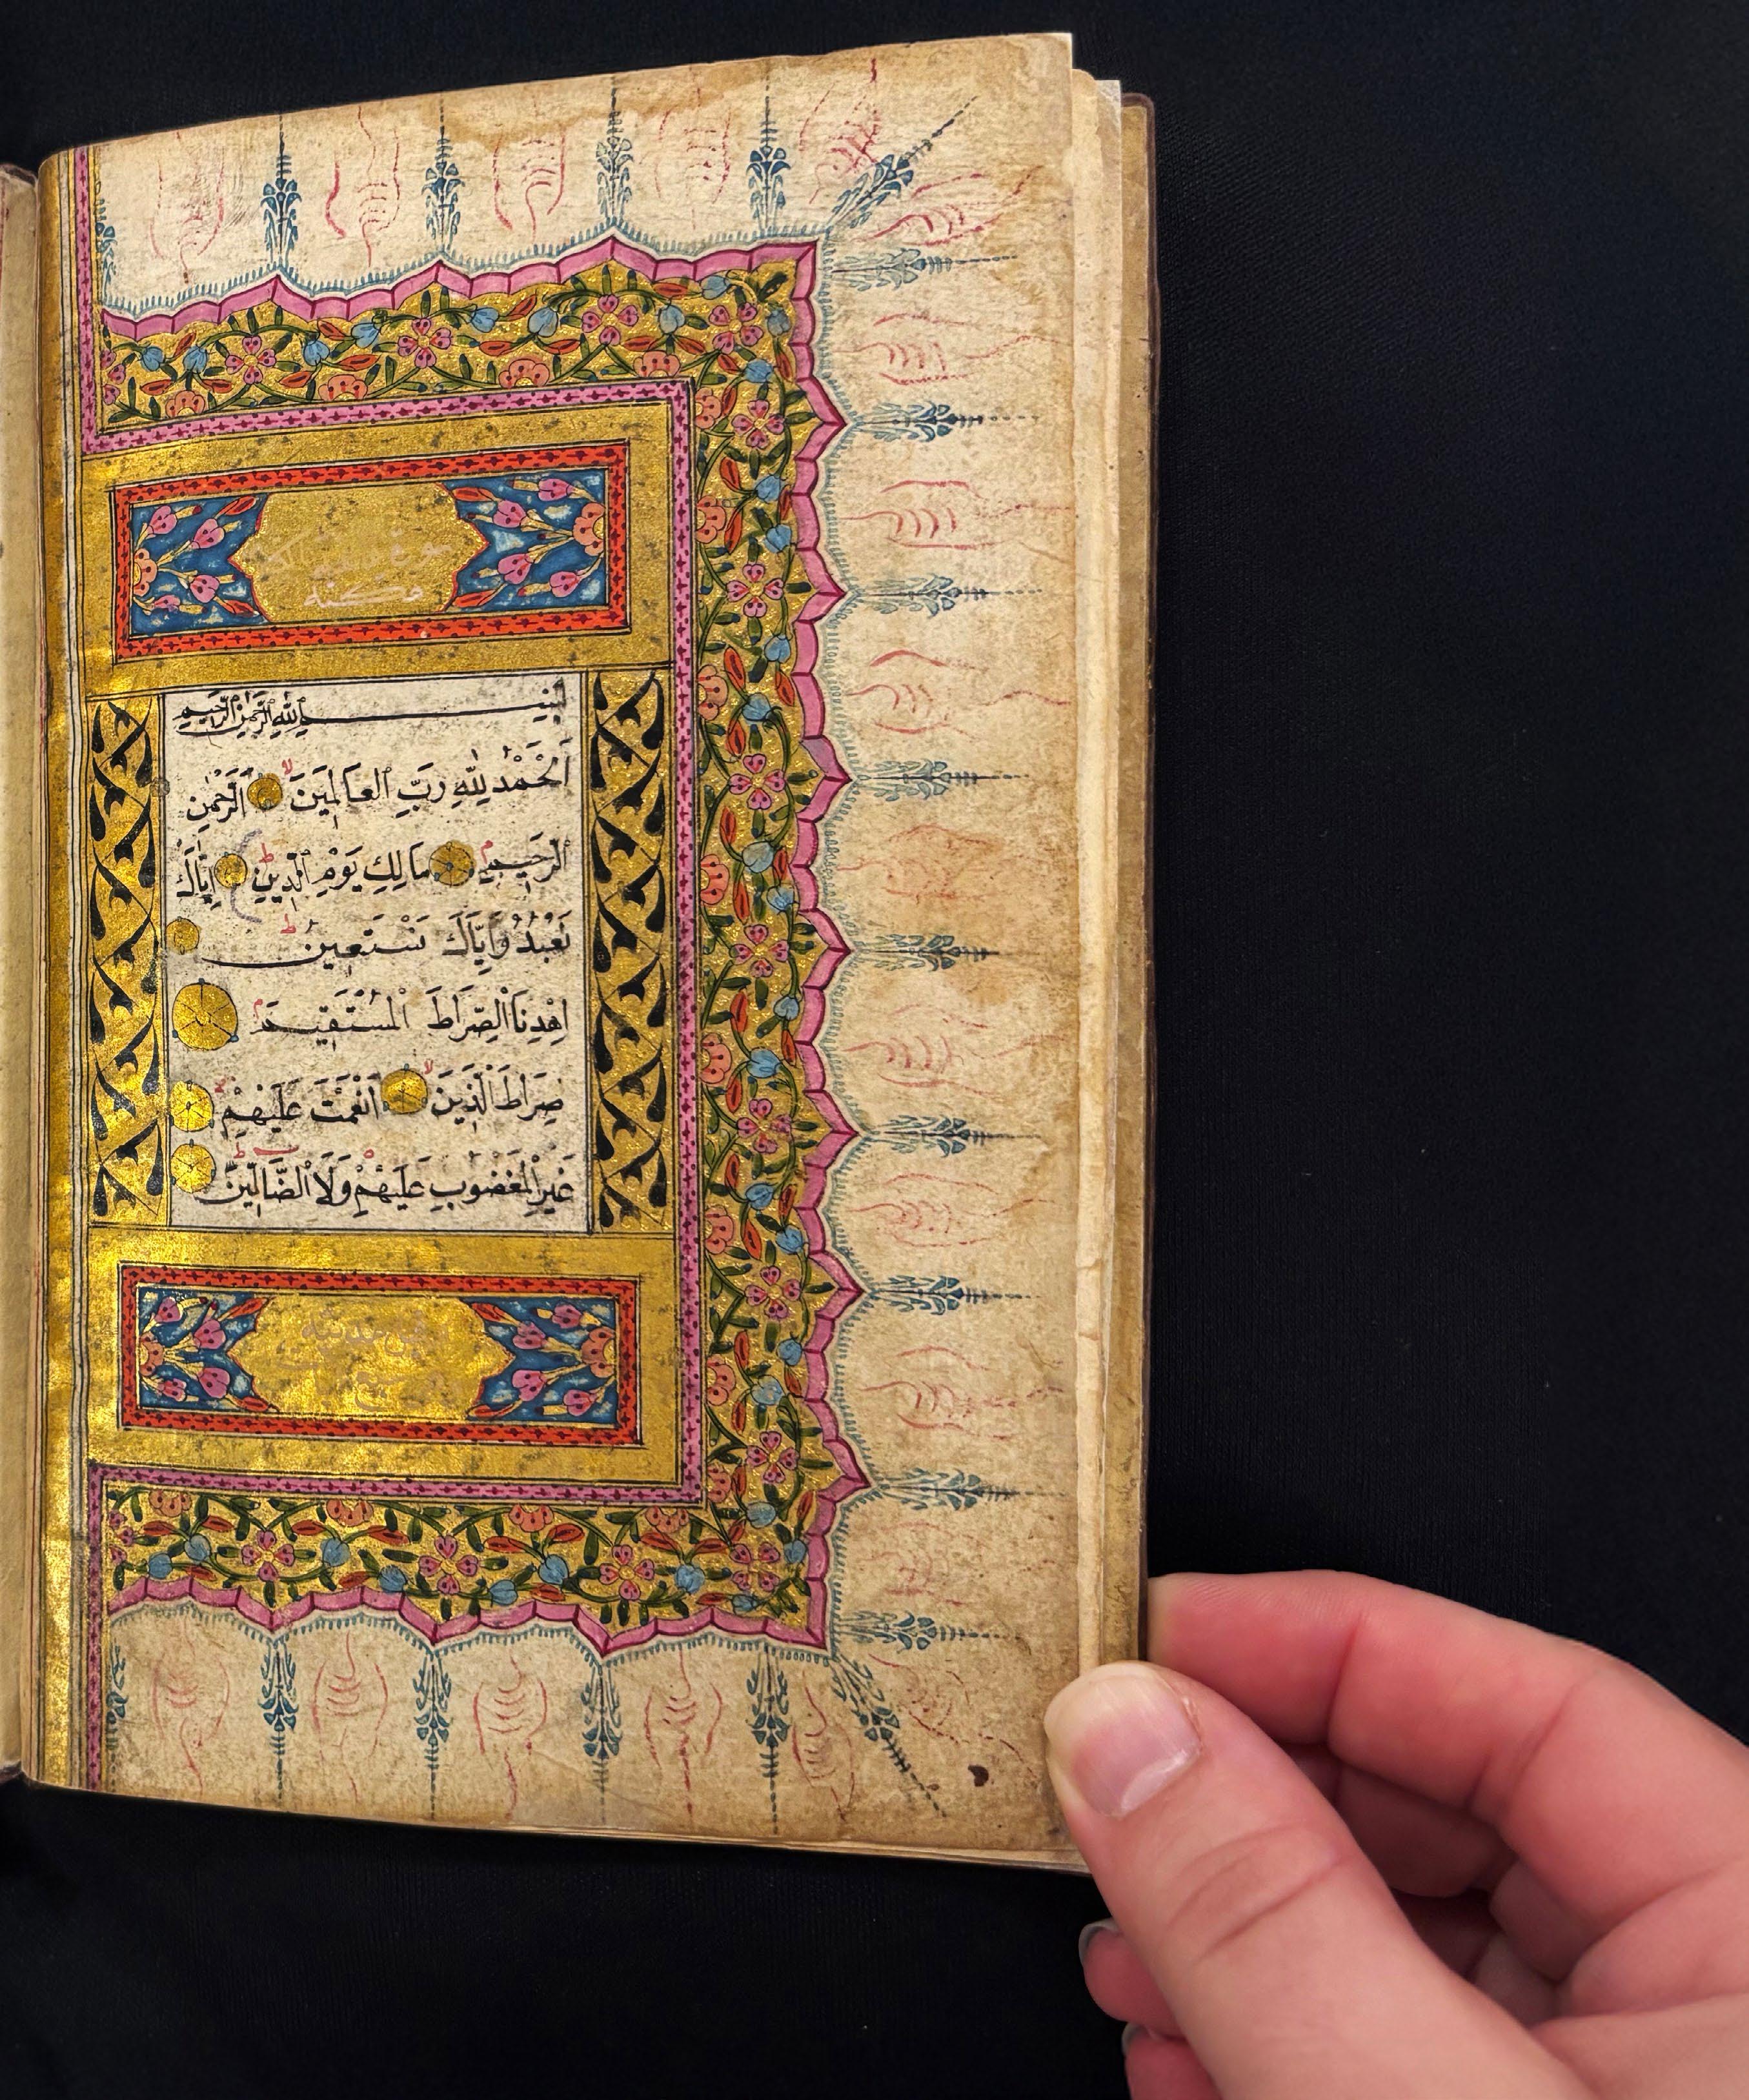 سورة فاتحة الكتاب
مكية
بِسْمِ اللهِ الرَّحْمٰنِ الرَّحِيمِ
اَلْحَمْدُ لِلّٰهِ رَبِّ الْعَالَمِينَ لا الرَّحْمٰنِ
الرَّحِيمِ م مَالِكِ يَوْمِ الدِّينِ ط اِيَّاكَ
نَعْبُدُ وَاِيَّاكَ نَسْتَعِينُ ط
اِهْدِنَا الصِّرَاطَ الْمُسْتَقِيمَ م
صِرَاطَ الَّذِينَ لا اَنْعَمْتَ عَلَيْهِمْ
غَيْرِ الْمَغْضُوبِ عَلَيْهِمْ وَلَا الضَّالِّينَ
مدنية
سبع